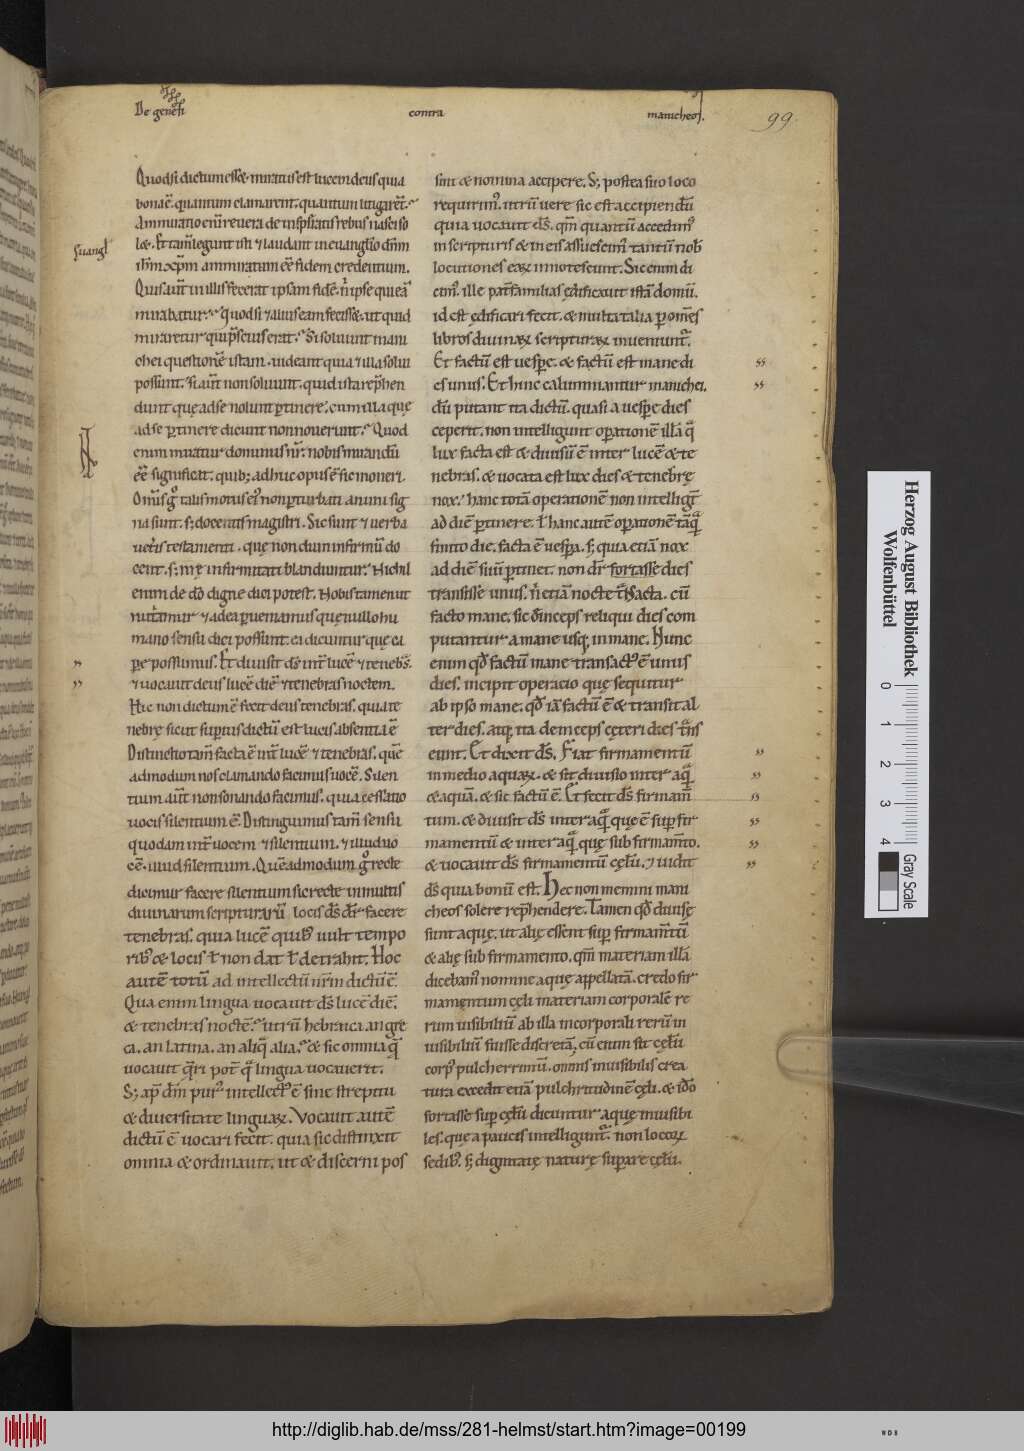 De genesi contra manicheos.
99.
Quod si dictum esset. miratus est lucem deus quia
bona ē. quantum clamarent. quantum litigarēt.
Ammiratio enī revera de insperatis rebus nasci so
let. Et tam̄ legunt isti ⁊ laudant in euangl̄io dn̄m
ih̄m xp̄m ammiratum eē fidem credentium.
Quis aūt in illis fecerat ipsam fidē. n̄ ipse qui eā
mirabatur. Quod si ⁊ alius eam fecisset. ut quid
miraretur qui p̄scius erat. Si soluunt mani
chei questionē istam. uideant quia ⁊ illa solui
possunt. si aūt non soluunt. quid ista rep̄hen
dunt quę ad se nolunt ꝑtinere. cum illa quę
ad se ꝑtinere dicunt non nouerunt. Quod
enim miratur dominus nr̄. nobis mirandū
eē significat. quib; adhuc opus ē sic moueri.
Om̄s g̊ tales motus ei' non ꝑturbati animi sig
na sunt. s; docentis magistri. Sic sunt ⁊ uerba
uet̄is testamenti. quę non dum infirmū do
cent. s; nr̄ę infirmitati blandiuntur. Nichil
enim de dō digne dici potest. Nobis tamen ut
nut̄amur ⁊ ad ea ꝑueniamus quę nullo hu
mano sensu dici possunt. ea dicuntur quę ca
pere possumus. Et diuisit dS̄ int̄ lucē ⁊ tenebs̄.
⁊ uocauit deus lucē diē ⁊ tenebras noctem.
Hic non dictum ē fecit deus tenebras. quia te
nebrę sicut suꝑius dictū est lucis absentia ē
Distinctio tam̄ facta ē int̄ lucē ⁊ tenebras. quē
admodum nos clamando facimus uocē. Silen
tium aūt non sonando facimus. quia cessatio
uocis silentium ē. Distinguimus tam̄ sensu
quodam int̄ uocem ⁊ silentium. ⁊ illud uo
cē. illud silentium. Quēadmodum g̊ recte
dicimur facere silentium sic recte in multis
diuinarum scripturarū locis dS̄ dr̄ facere
tenebras. quia lucē quib' uult tempo
rib' & locis ł non dat ł detrahit. Hoc
autē totū ad intellectū nr̄m dictū ē.
Qua enim lingua uocauit dS̄ lucē diē.
& tenebras noctē. utrū hebraica. an gre
ca. an latina. an aliq̄ alia. & sic omnia q̄
uocauit q̄ri pot̄ q̄ lingua uocauerit.
S; ap̄ dm̄ pur' intellect' ē sine strepitu
& diuersitate linguaꝝ. Vocauit autē
dictū ē uocari fecit. quia sic distinxit
omnia & ordinauit. ut & discerni pos
sint & nomina accipere. S; postea suo loco
requirim'. utrū uere sic est accipiendū
quia uocauit dS̄. qm̄ quantū accedim'
in scripturis & in eis assuescim' tantū nob'
locutiones eaꝝ innotescunt. Sic enim di
cim'. ille pat̄familias ędificauit istā domū.
id est ędificari fecit. & multa talia ꝑ om̄es
libros diuinaꝝ scripturaꝝ inueniunt̄.
Et factū est uesꝑe. & factū est mane di
es unus. Et hinc calumniantur manichei.
dū putant ita dictū. quasi a uesꝑe dies
ceperit. non intelligunt oꝑationē illā q̄
lux facta est & diuisū ē inter lucē & te
nebras. & uocata est lux dies & tenebrę
nox. hanc totā operationē non intelligt̄
ad diē ꝑtinere. ł hanc autē oꝑationē tāq̄
finito die. facta ē uesꝑa. s; quia etiā nox
ad diē suū ꝑtinet. non dr̄ fortasse dies
transisse unus. n̄ etiā nocte t̄sacta. cū
facto mane. sic deinceps reliqui dies com
putantur a mane usq; in mane. Nunc
enim qd̄ factū mane transact' ē unus
dies. incipit operatio quę sequitur
ab ipso mane. qd̄ iā factū ē & transit al
ter dies. atq; ita deinceps cęteri dies t̄ns
eunt. Et dixit dS̄. Fiat firmamentū
in medio aquaꝝ. & sit diuisio inter aq̄
& aquā. & sic factū ē. Et fecit dS̄ firmam̄
tum. & diuisit dS̄ inter aq̄ quę ē suꝑ fir
mamentū & inter aq̄ quę sub firmam̄to.
& uocauit dS̄ firmamentū cęlū. ⁊ uidit
dS̄ quia bonū est. Hec non memini mani
cheos solere rep̄hendere. Tamen qd̄ diuisę
sunt aquę. ut alię essent suꝑ firmam̄tū
& alię sub firmamento. qm̄ materiam illā
dicebam' nomine aquę appellatā. credo fir
mamentum cęli materiam corporalē re
rum uisibiliū ab illa incorporali rerū in
uisibiliū fuisse discretā. cū enim sit cęlū
corp' pulcherrimū. omnis inuisibilis crea
tura excedit etiā pulchritudinē cęli. & ideo
fortasse suꝑ cęlū dicuntur aquę inuisibi
les. quę a paucis intelligunt̄. non locoꝝ
sedib'. s; dignitate naturę suꝑare cęlū.
Herzog August Bibliothek
Wolfenbüttel
0 1 2 3 4
Gray Scale
http://diglib.hab.de/mss/281-helmst/start.htm?image=00199
WDB